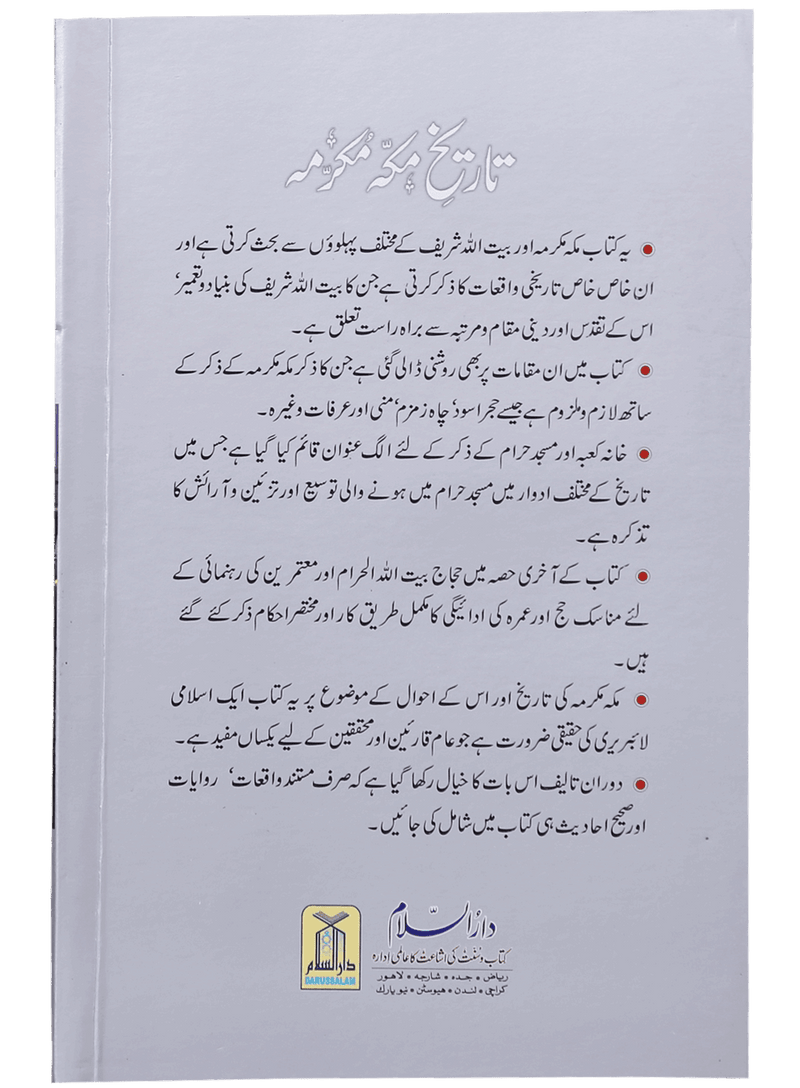 تاریخ مکہ مکرمہ
• یہ کتاب مکہ مکرمہ اور بیت اللہ شریف کے مختلف پہلوؤں سے بحث کرتی ہے اور
ان خاص خاص تاریخی واقعات کا ذکر کرتی ہے جن کا بیت اللہ شریف کی بنیاد و تعمیر'
اس کے تقدّس اور دینی مقام و مرتبہ سے براہ راست تعلق ہے۔
• کتاب میں ان مقامات پر بھی روشنی ڈالی گئی ہے جن کا ذکر مکہ مکرمہ کے ذکر کے
ساتھ لازم و ملزوم ہے جیسے حجر اسود' چاہ زمزم' منی اور عرفات وغیرہ۔
• خانہ کعبہ اور مسجد حرام کے ذکر کے لئے الگ عنوان قائم کیا گیا ہے جس میں
تاریخ کے مختلف ادوار میں مسجد حرام میں ہونے والی توسیع اور تزئین و آرائش کا
تذکرہ ہے۔
• کتاب کے آخری حصہ میں حجاج بیت اللہ الحرام اور معتمرین کی رہنمائی کے
لئے مناسک حج اور عمرہ کی ادائیگی کا مکمل طریق کار اور مختصر احکام ذکر کئے گئے
ہیں۔
• مکہ مکرمہ کی تاریخ اور اس کے احوال کے موضوع پر یہ کتاب ایک اسلامی
لائبریری کی حقیقی ضرورت ہے جو عام قارئین اور محققین کے لیے یکساں مفید ہے۔
• دوران تالیف اس بات کا خیال رکھا گیا ہے کہ صرف مستند واقعات' روایات
اور صحیح احادیث ہی کتاب میں شامل کی جائیں۔
دارالسلام
کتاب و سنت کی اشاعت کا عالمی ادارہ
ریاض • جدہ • شارجہ • لاہور
کراچی • لندن • ہیوسٹن • نیو یارک
دارالسلام
DARUSSALAM